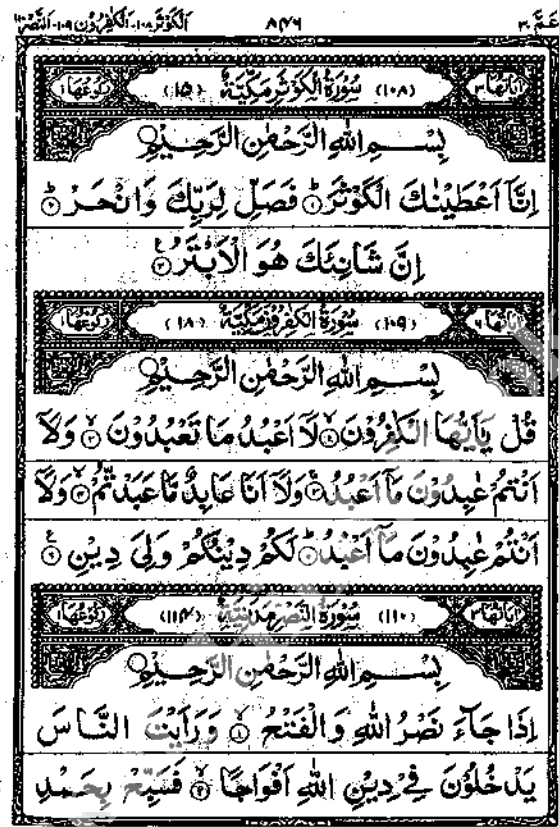 عمّ ۳۰ ۸۴۶ الكوثر ۱۰۸۔ الكٰفرون ۱۰۹۔ النصر ۱۱۰
اٰيَاتُهَا ۳ (۱۰۸) سُوْرَةُ الْكَوْثَرِ مَكِّيَّةٌ (۱۵) رُكُوْعُهَا ۱
بِسْمِ اللّٰهِ الرَّحْمٰنِ الرَّحِيْمِ
اِنَّاۤ اَعْطَيْنٰكَ الْكَوْثَرَ ۱ فَصَلِّ لِرَبِّكَ وَانْحَرْ ۲
اِنَّ شَانِئَكَ هُوَ الْاَبْتَرُ ۳
اٰيَاتُهَا ۶ (۱۰۹) سُوْرَةُ الْكٰفِرُوْنَ مَكِّيَّةٌ (۱۸) رُكُوْعُهَا ۱
بِسْمِ اللّٰهِ الرَّحْمٰنِ الرَّحِيْمِ
قُلْ يٰۤاَيُّهَا الْكٰفِرُوْنَ ۱ لَاۤ اَعْبُدُ مَا تَعْبُدُوْنَ ۲ وَلَاۤ
اَنْتُمْ عٰبِدُوْنَ مَاۤ اَعْبُدُ ۳ وَلَاۤ اَنَا عَابِدٌ مَّا عَبَدْتُّمْ ۴ وَلَاۤ
اَنْتُمْ عٰبِدُوْنَ مَاۤ اَعْبُدُ ۵ لَكُمْ دِيْنُكُمْ وَلِىَ دِيْنِ ۶
اٰيَاتُهَا ۳ (۱۱۰) سُوْرَةُ النَّصْرِ مَدَنِيَّةٌ (۱۱۴) رُكُوْعُهَا ۱
بِسْمِ اللّٰهِ الرَّحْمٰنِ الرَّحِيْمِ
اِذَا جَآءَ نَصْرُ اللّٰهِ وَالْفَتْحُ ۱ وَرَاَيْتَ النَّاسَ
يَدْخُلُوْنَ فِىْ دِيْنِ اللّٰهِ اَفْوَاجًا ۲ فَسَبِّحْ بِحَمْدِ